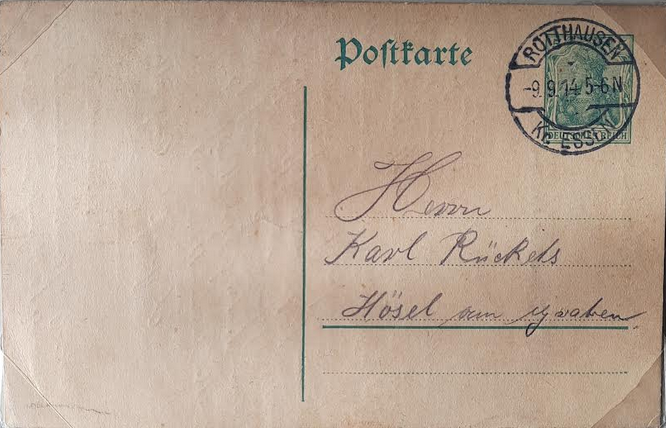 Postkarte
ROTTHAUSEN
-9.9.14.5-6N
Kr. ESSEN
DEUTSCHES REICH
Herrn
Karl Rückels
Hösel am